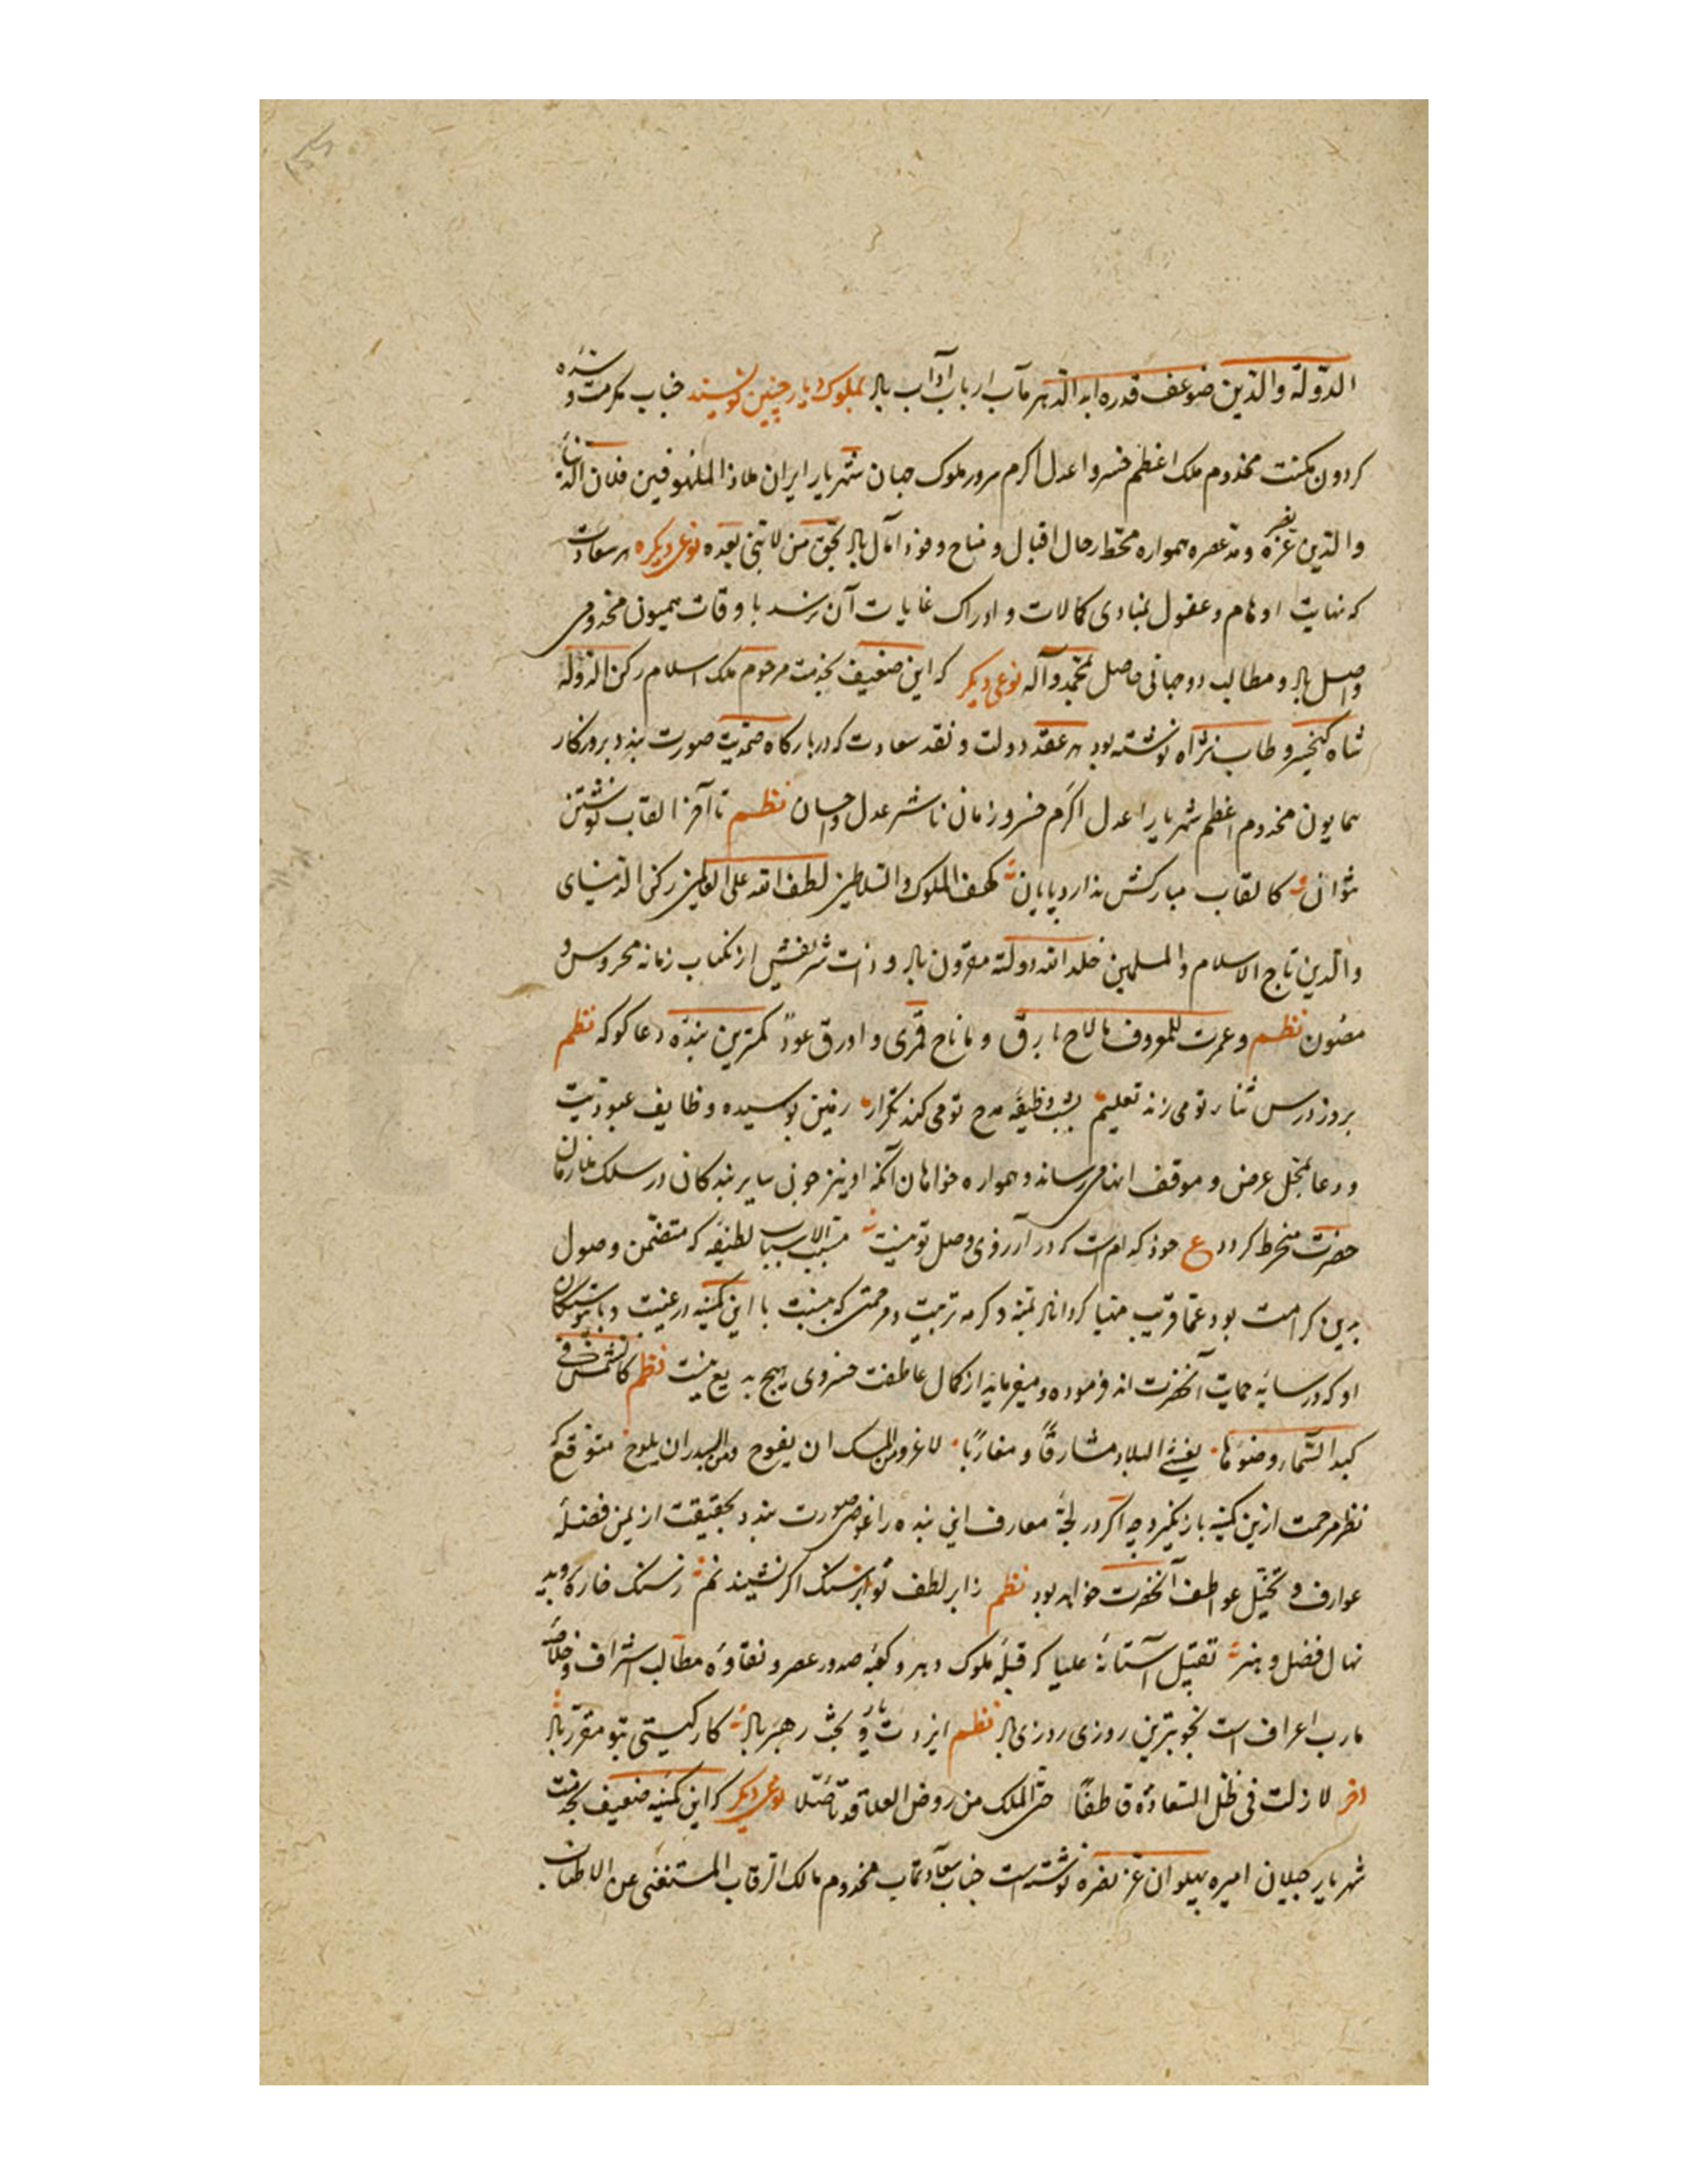 الدولة والدین ضوعف قدره ابد الدهر مآب ارباب آداب باد بملوک دیار چنین نویسند جناب مکرمت شده و
کردون مکنت مخدوم ملک اعظم خسرو اعدل اکرم سرور ملوک جهان شهریار ایران ملاذ الملهوفین فلان الدنیا
والدین عز نصره و مد عصره همواره محط رحال اقبال و مناح و فوز آمال باد بحق من لا نبی بعده نوعی دیکره هر سعادت
که نهایت اوهام و عقول بمبادی کمالات و ادراک غایات آن نرسد با وقات همیون مخدومی
واصل باد و مطالب دوجهانی حاصل بمحمد وآله نوعی دیکر که این ضعیف بخدمت مرحوم ملک اسلام رکن الدوله
شاه کیخسرو طاب ثراه نوشته بود هر عقد دولت و نقد سعادت که در بارکاه صمدیت صورت بندد بروزکار
همایون مخدوم اعظم شهریار اعدل اکرم خسرو زمان ناشر عدل و احسان نظم تا آخر القاب نوشتن
نتوان کالقاب مبارکش ندارد پایان کهف الملوک والسلاطین لطف الله علی العالمین رکن الدنیای
والدین تاج الاسلام والمسلمین خلد الله دولته مقرون باد و ذات شریفش از نکبات زمانه محروس و
مصون نظم وعمرت للمعروف مالاح بارق وما ناح قمری و اورق عود کمترین بنده دعا کو که نظم
بروز درس ثنا تو می زند تعلیم بشب وظیفه مدح تو می کند تکرار زمین بوسیده وظایف عبودیت
و دعا بمحل عرض و موقف انها می رساند و همواره خواهان آنکه او نیز چون سایر بندکان در سلک ملازمان
حضرت منخرط کردد ع خود که ام است که در آرزوی وصل تو نیست مسبب الاسباب لطیفه که متضمن وصول
بدین کرامت بود عما قریب مهیا کرداناد بمنه و کرمه تربیت و مرحمتی که نسبت با این کمینه در غیبت و با پیوستکان
او که در سایه حمایت آنحضرت اند فرموده و میفرماید از کمال عاطفت خسروی هیچ بدیع نیست نظم کالشمس فی
کبد السماء وضوءها یغشی البلاد مشارقا و مغاربا لاغرو للمسک ان یفوح وللبدر ان یلوح متوقع که
نظر مرحمت ازین کمینه بازنکیرد چه اکر در لجه معارف این بنده را غوص صورت بندد بحقیقت از یمن فضله
عوارف و تخیل عواطف آنحضرت خواهد بود نظم ز ابر لطف تو بر سنک اکر نشیند نم ز سنک خاره بروید
نهال فضل و هنر تقبیل آستانه علیا که قبله ملوک دهر و کعبه صدور عصر و نقاوه مطالب اشراف و خلاصه
مارب اعراف است بخوبترین روزی روزی باد نظم ایزدت یار و بخت رهبر باد کار کیتی بتو مقرر باد
اخر لا زلت فی ظل السعادة قاطفا من روض العلا نوعی دیکر که این کمینه ضعیف بخدمت
شهریار جیلان امیره پهلوان عز نصره نوشته است جناب سعادتمآب مخدوم مالک الرقاب المستغنی عن الاطناب